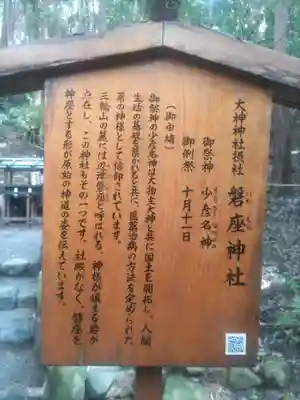 大神神社摂社 磐座神社
いわくら
御祭神 少彦名神
すくなひこなのかみ
御例祭 十月十一日
(御由緒)
御祭神の少彦名神は大物主大神と共に国土を開拓し、人間
生活の基礎を築かれると共に、医薬治病の方法を定められた
薬の神様として信仰されています。
三輪山の麓には辺津磐座と呼ばれる、神様が鎮まる岩が
点在し、この神社もその一つです。社殿がなく、磐座を
神座とする形が原始の神道の姿を伝えています。